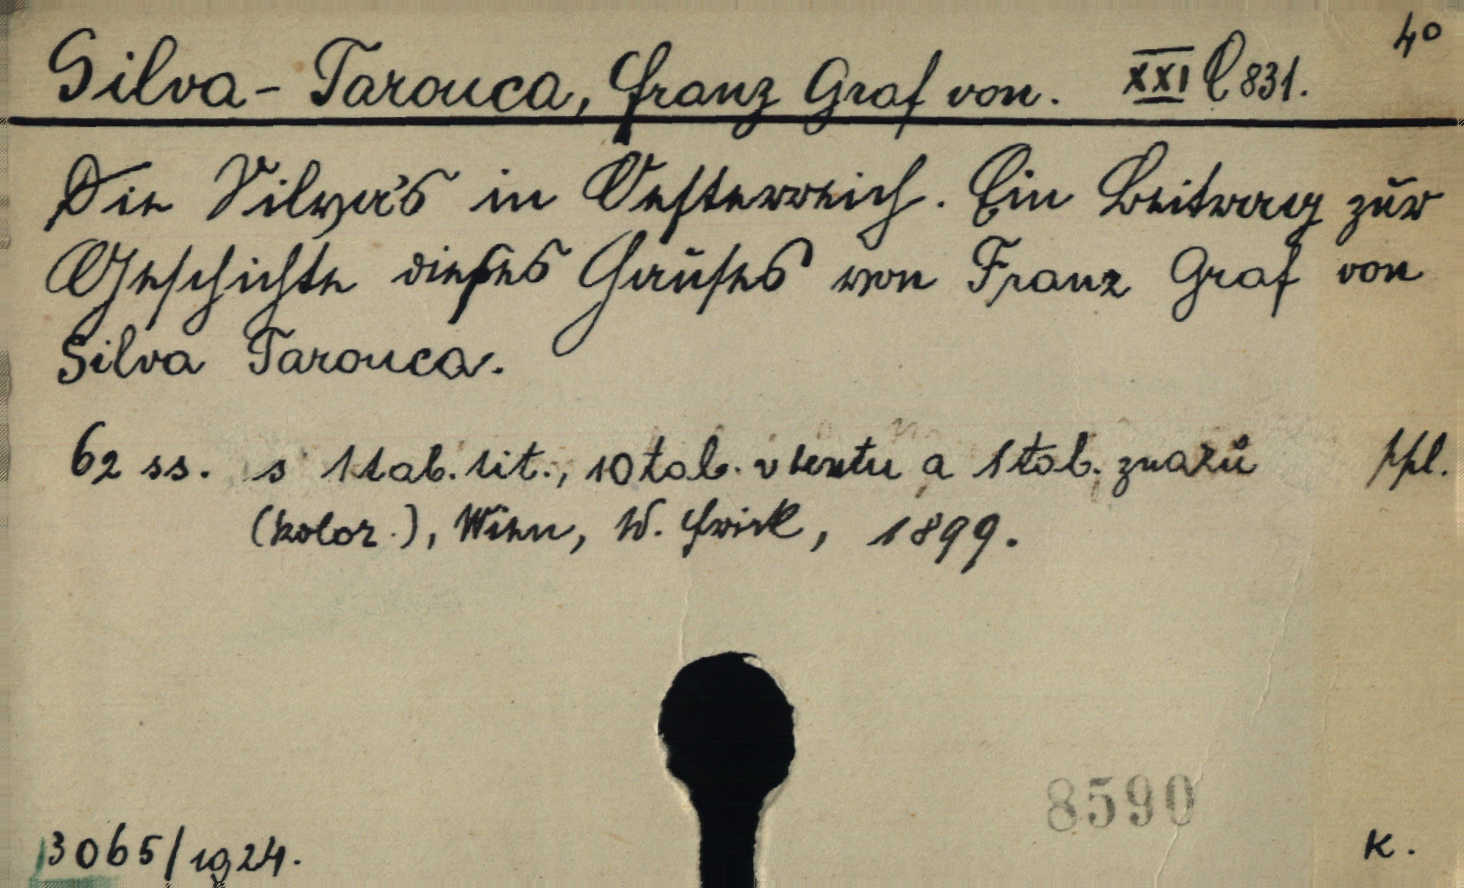 Silva-Tarouca, Franz Graf von. XXI C 831. 4°
Die Silva's in Oesterreich. Ein Beitrag zur
Geschichte dieses Hauses von Franz Graf von
Silva Tarouca.
62 ss. s 1 tab. tit., 10 tab. v textu a 1 tab. znaků ppl.
(kolor.), Wien, W. Frick, 1899.
8590
3065/1924. K.